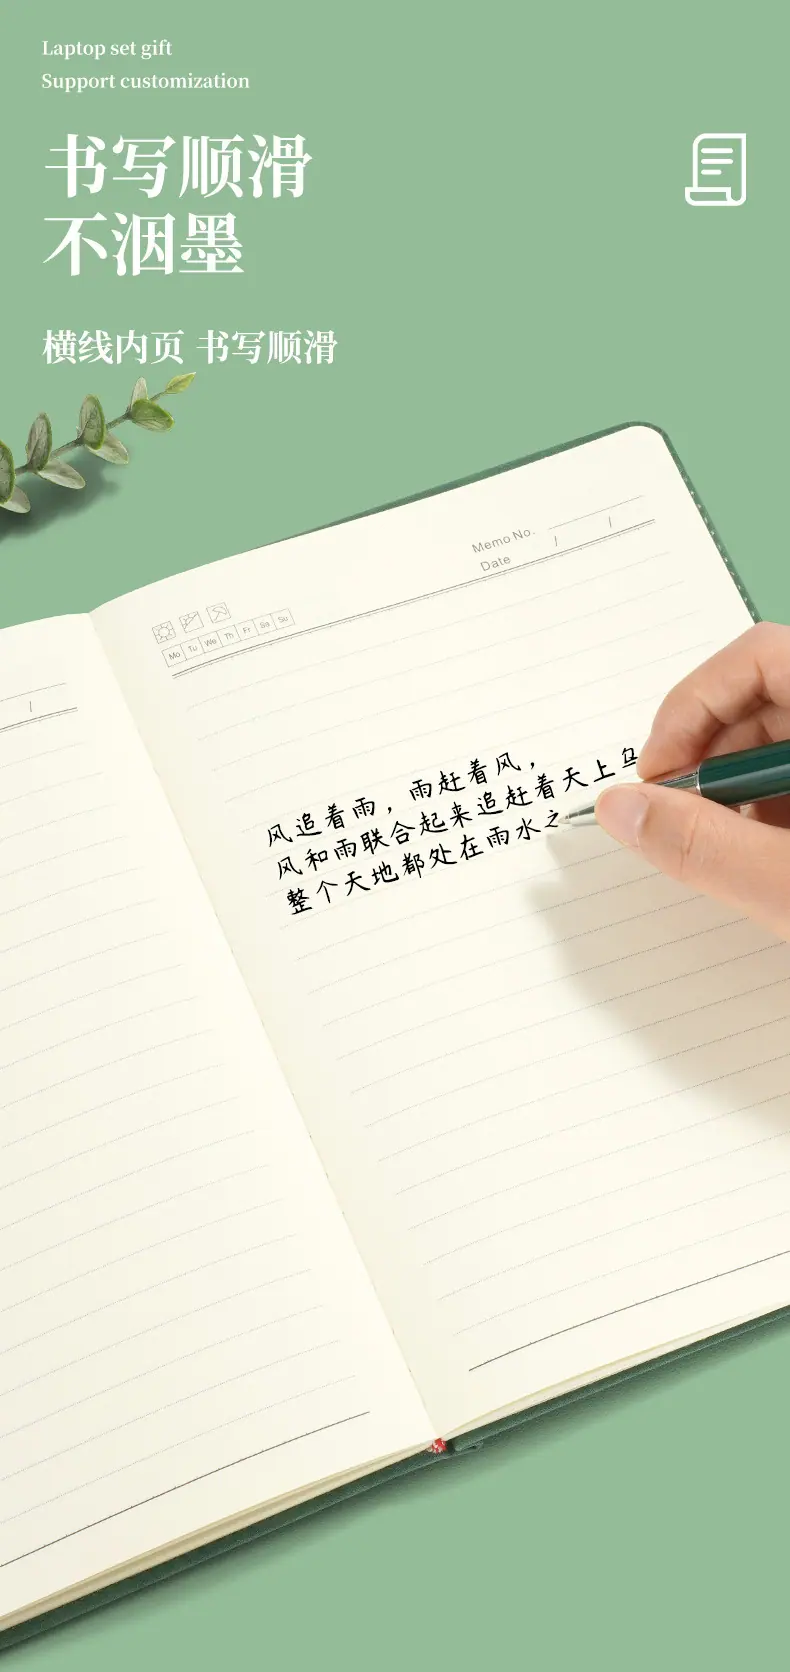 Laptop set gift
Support customization
书写顺滑
不洇墨
横线内页 书写顺滑
Memo No.
Date / /
Mo Tu We Th Fr Sa Su
/
风追着雨，雨赶着风，
风和雨联合起来追赶着天上乌
整个天地都处在雨水之